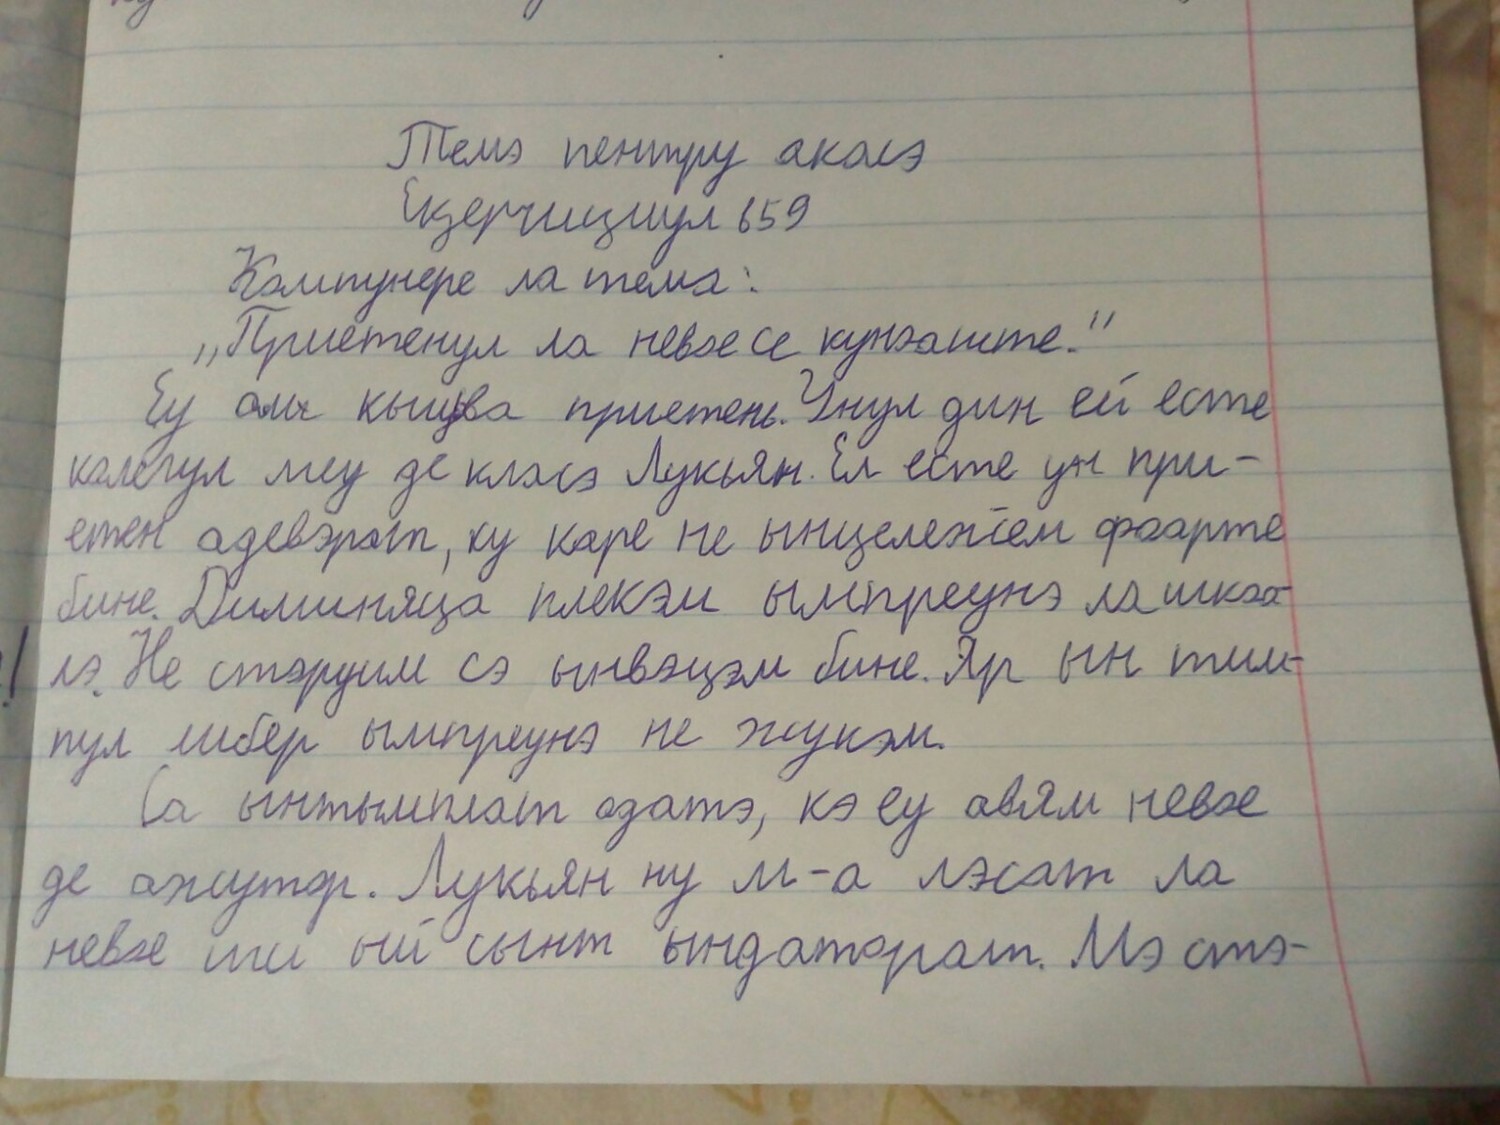 Темэ пентру акасэ
Екзерчициул 659
Компунере ла тема:
„Приетенул ла невое се куноаште."
Еу ам кыцва приетень. Унул дин ей есте
колегул меу де класэ Лукьян. Ел есте ун при-
етен адевэрат, ку каре не ынцележем фоарте
бине. Диминяца плекэм ымпреунэ ла шкоа-
лэ. Не стэруим сэ ынвэцэм бине. Яр ын тим-
пул либер ымпреунэ не жукэм.
Са ынтымплат одатэ, кэ еу авям невое
де ажутор. Лукьян ну м-а лэсат ла
невое ши ый сынт ындаторат. Мэ стэ-